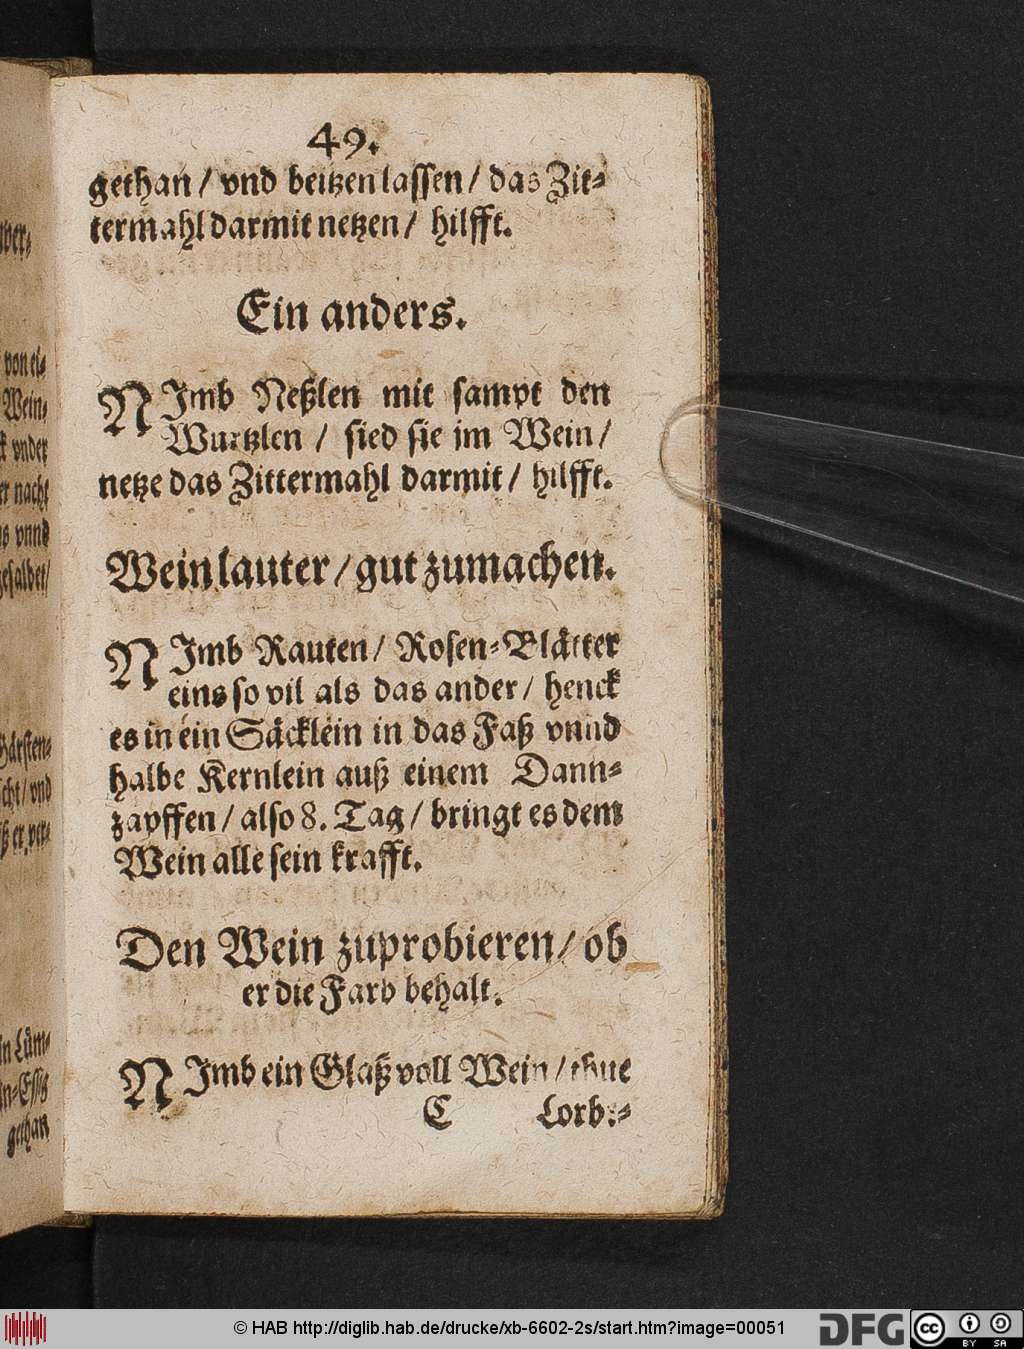 49.
gethan / vnd beitzen lassen / das Zit-
termahl darmit netzen / hilfft.
Ein anders.
NImb Neßlen mit sampt den
Wurtzlen / sied sie im Wein /
netze das Zittermahl darmit / hilfft.
Wein lauter / gut zumachen.
NImb Rauten / Rosen-Blätter
eins so vil als das ander / henck
es in ein Säcklein in das Faß vnnd
halbe Kernlein auß einem Dann-
zapffen / also 8. Tag / bringt es dem
Wein alle sein krafft.
Den Wein zuprobieren / ob
er die Farb behalt.
NImb ein Glaß voll Wein / thue
C Lorb-
ver-
von ei-
Wein-
vnder
er nacht
vnnd
gesalbet /
Gärsten-
vnd
er ver-
Lüm-
Essig
gethan
© HAB http://diglib.hab.de/drucke/xb-6602-2s/start.htm?image=00051
DFG
cc
BY SA